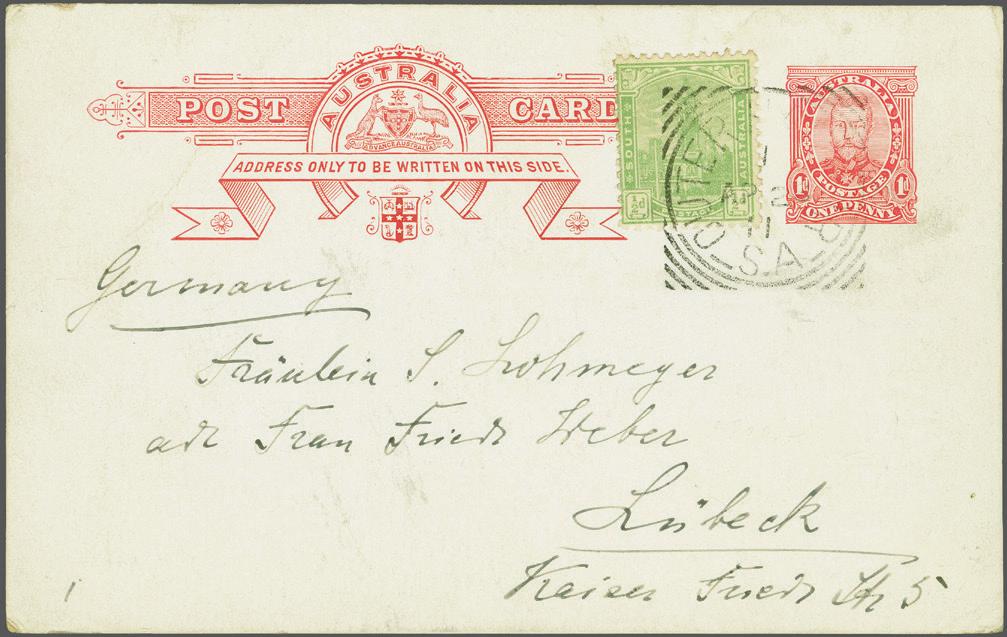 POST AUSTRALIA CARD
ADVANCE AUSTRALIA
ADDRESS ONLY TO BE WRITTEN ON THIS SIDE.
SOUTH AUSTRALIA
½d POSTAGE ½d
OUTER
AP 2
11
S.A.
AUSTRALIA
1d POSTAGE 1d
ONE PENNY
Germany
Fräulein S. Lohmeyer
adr Frau Friedr Weber
Lübeck
Kaiser Friedr Str 5
1